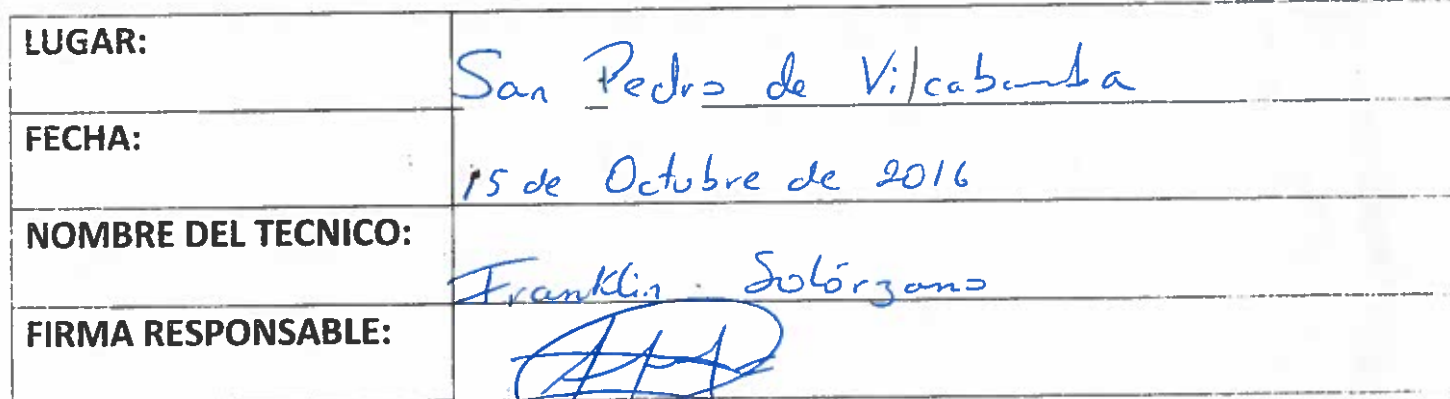 LUGAR: San Pedro de Vilcabamba
FECHA: 15 de Octubre de 2016
NOMBRE DEL TECNICO: Franklin Solórzano
FIRMA RESPONSABLE: